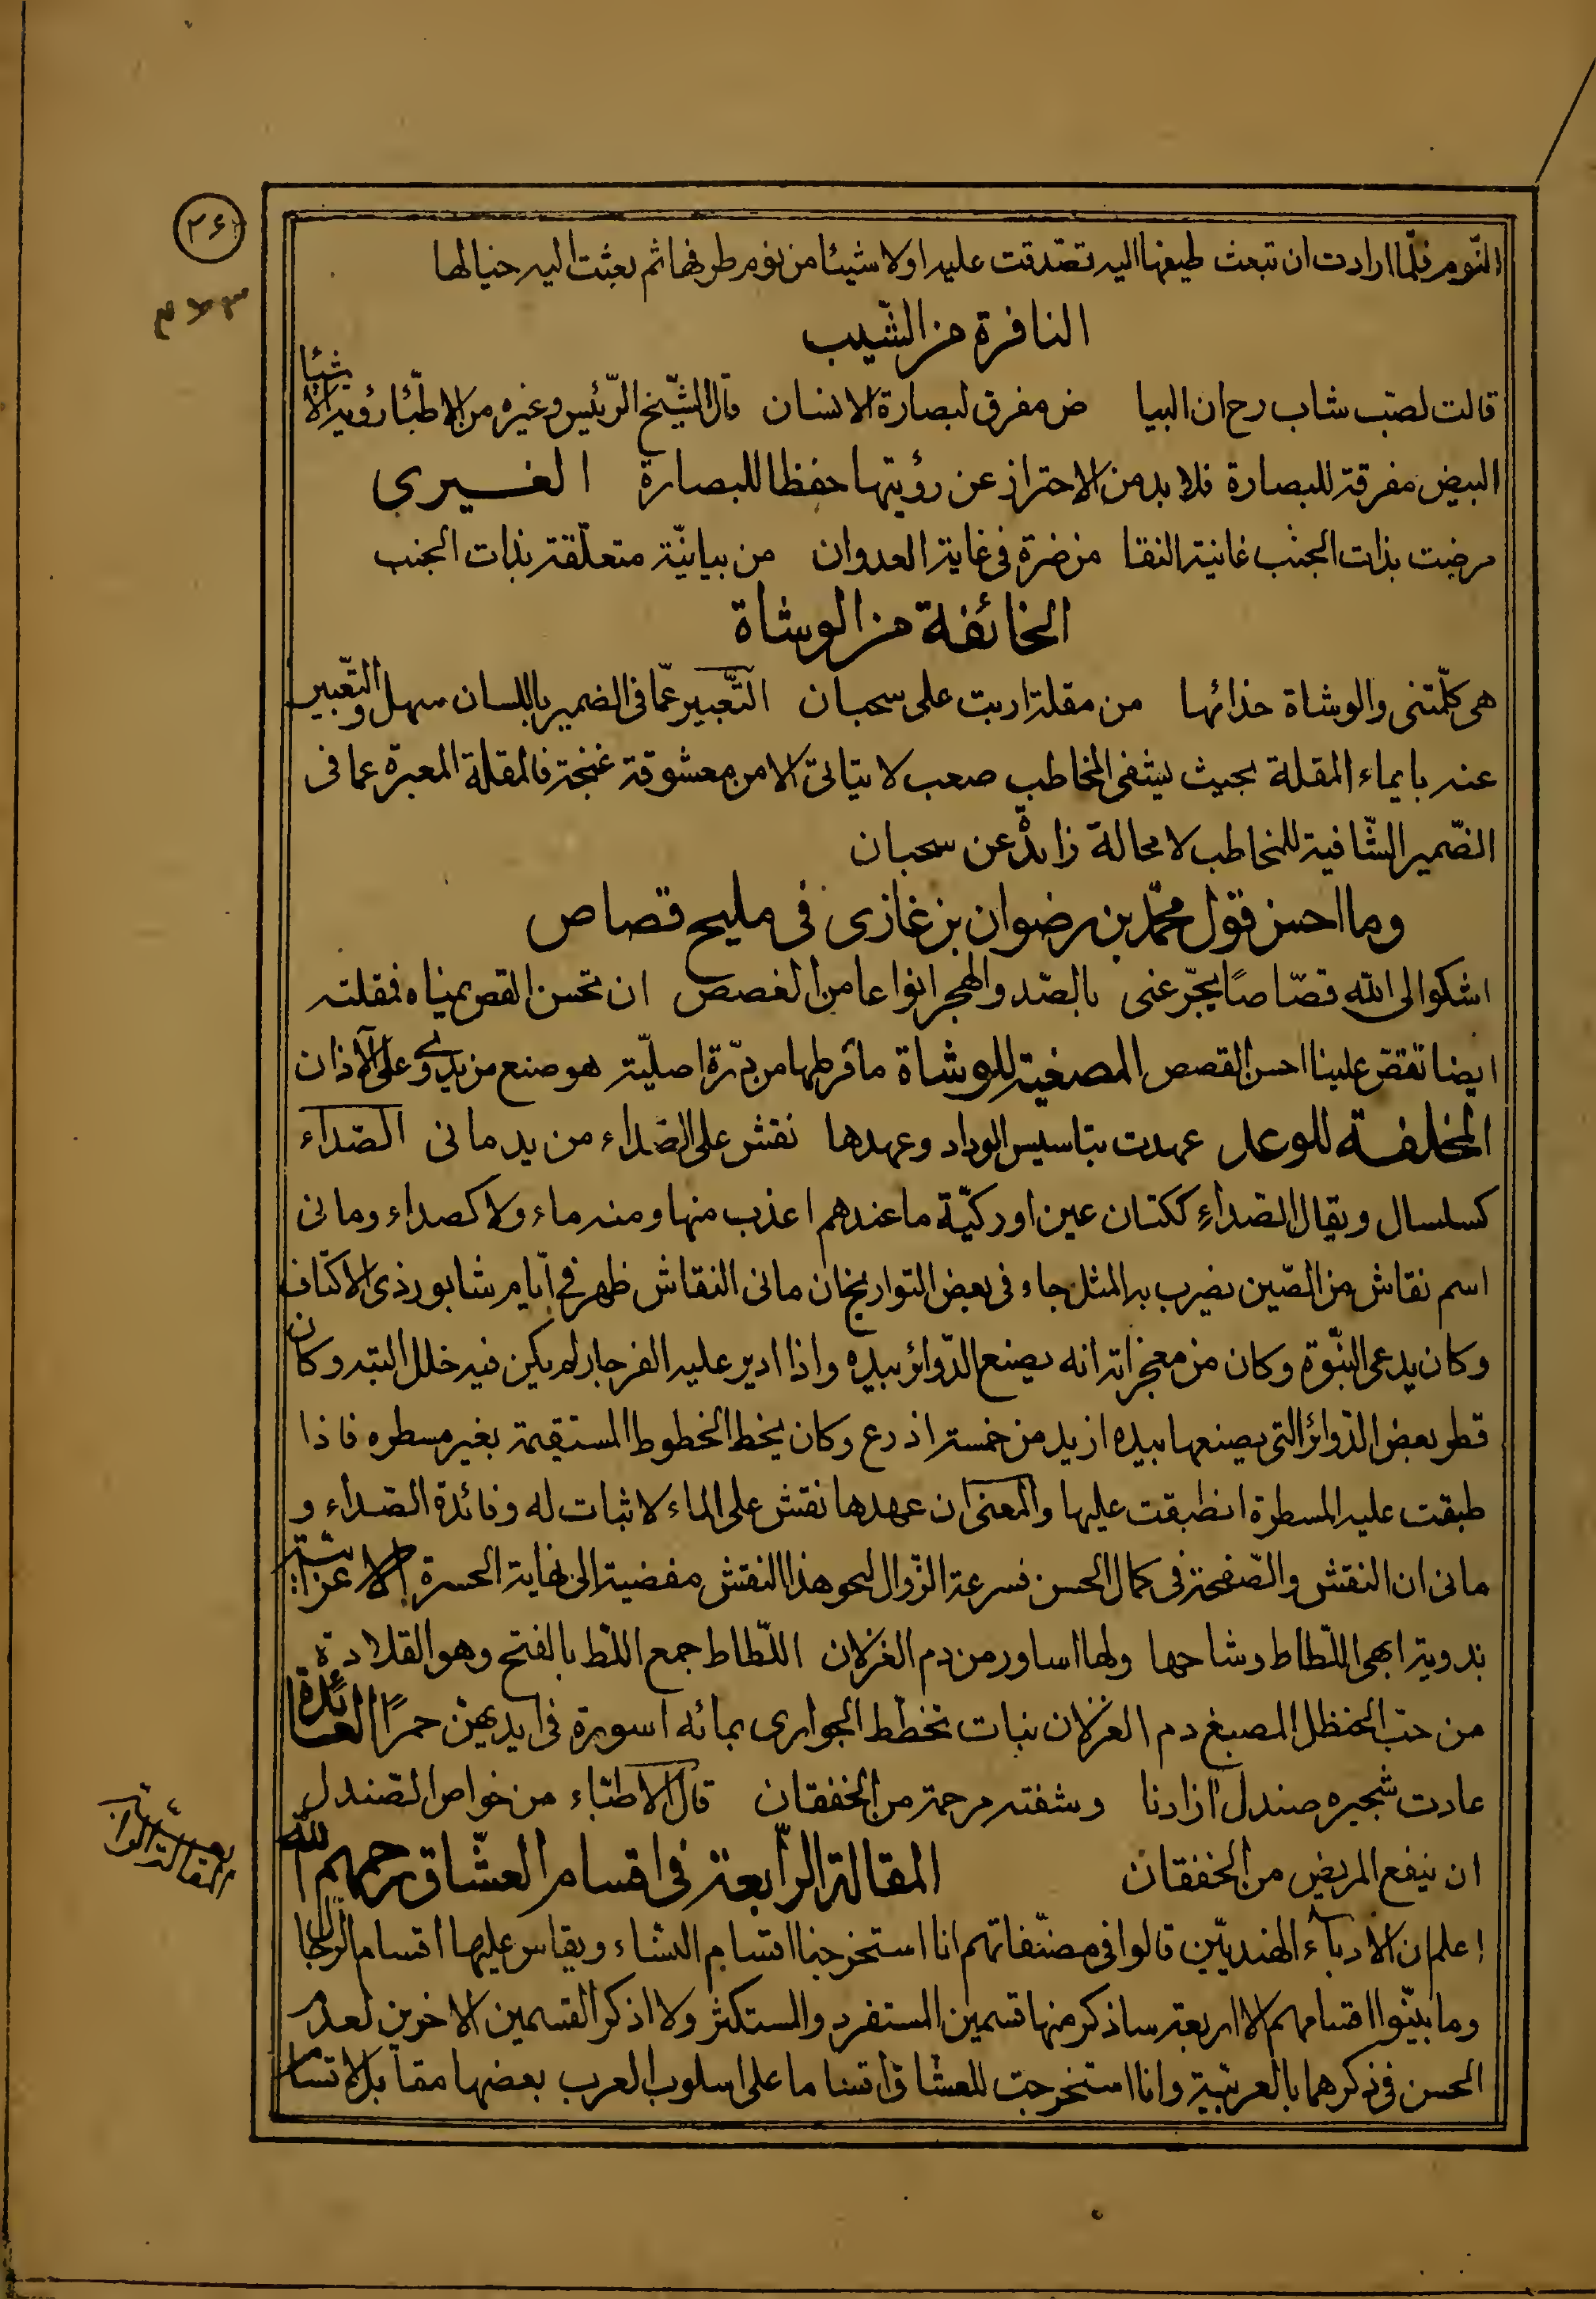 ٢٦
النّوم فلمّا ارادت ان تبعث طيفها اليه تصّدقت عليه اولا شيئا من نوم طرفها ثم بعثت اليه خيالها
النافرة من الشّيب
قالت لصّب شاب رح ان البيا ض مفرق لبصارة الانسان قال الشّيخ الرّئيس وغيره من الاطبّا رؤية الاشيا
البيض مفرقة للبصارة فلا بد من الاحتراز عن رؤيتها حفظا للبصارة الغيرى
مرضت بذات الجنب غانية النقا من ضرة فى غاية العدوان من بيانيّة متعلّقة بذات الجنب
الخائفة من الوشاة
هى كلّمتنى والوشاة حذائها من مقلة اربت على سحبان التّعبير عمّا فى الضمير باللسان سهل والتّعبير
عنه بايماء المقلة بحيث يشفى المخاطب صعب لا يتاتى الا من معشوقة غنجة فالمقلة المعبرة عما فى
الضّمير الشّافية للمخاطب لا محالة زائدة عن سحبان
وما احسن قول محمّد بن رضوان بن غازى فى مليح قصاص
اشكوا الى الله قصّاصًا يجّرعنى بالصّد والهجر انواعا من الغصص ان تحسن القص يمناه فمقلته
ايضا تقصّ علينا احسن القصص المصغية للوشاة ما قرطها من درّة اصليّة هو صنع من يدوى على الآذان
المخلفة للوعد عهدت بتاسيس الوداد وعهدها نقش على الصّداء من يد مانى الصّداء
كسلسال ويقال الصّداءِ ككتان عين او ركيّة ما عندهم اعذب منها ومنه ماء ولا كصداء ومانى
اسم نقاش من الصّين يضرب به المثل جاء فى بعض التواريخ ان مانى النقاش ظهر فى ايّام شابور ذى الاكتاف
وكان يدعى النبّوة وكان من معجزاته انه يصنع الدّوائر بيده واذا ادير عليه الفرجار لم يكن فيه خلل البته وكان
قطر بعض الدّوائر التى يصنعها بيده ازيد من خمسة اذرع وكان يخط الخطوط المستقيمة بغير مسطره فاذا
طبقت عليه المسطرة انطبقت عليها والمعنى ان عهدها نقش على الماء لا ثبات له وفائدة الصّداء و
مانى ان النقش والصّفحة فى كمال الحسن فسرعة الزّوال لنحو هذا النقش مفضية الى نهاية الحسرة
بدوية ابهى اللّطاط وشاحها ولها اساور من دم الغزلان اللّطاط جمع اللّط بالفتح وهو القلادة
من حبّ الحنظل المصبغ دم الغزلان نبات تخطط الجوارى بمائه اسورة فى ايديهنّ حمرًا العائدة
عادت شجيره صندل ازادنا وشفته مرحمة من الخفقان قال الاطبّاء من خواص الصّندل
ان ينفع المريض من الخفقان المقالة الرّابعة فى اقسام العشّاق رحمهم الله
اعلم ان الادباء الهنديّين قالوا فى مصنّفاتهم انا استخرجنا اقسام النساء ويقاس عليها اقسام الرّجال
وما بيّنوا اقسامهم الا اربعة ساذكر منها قسمين المستفرد والمستكثر ولا اذكر القسمين الاخرين لعدم
الحسن فى ذكرهما بالعربيّة وانا استخرجت للعشاق اقساما على اسلوب العرب بعضها مقابل لاقسام
المقالة الرابعة